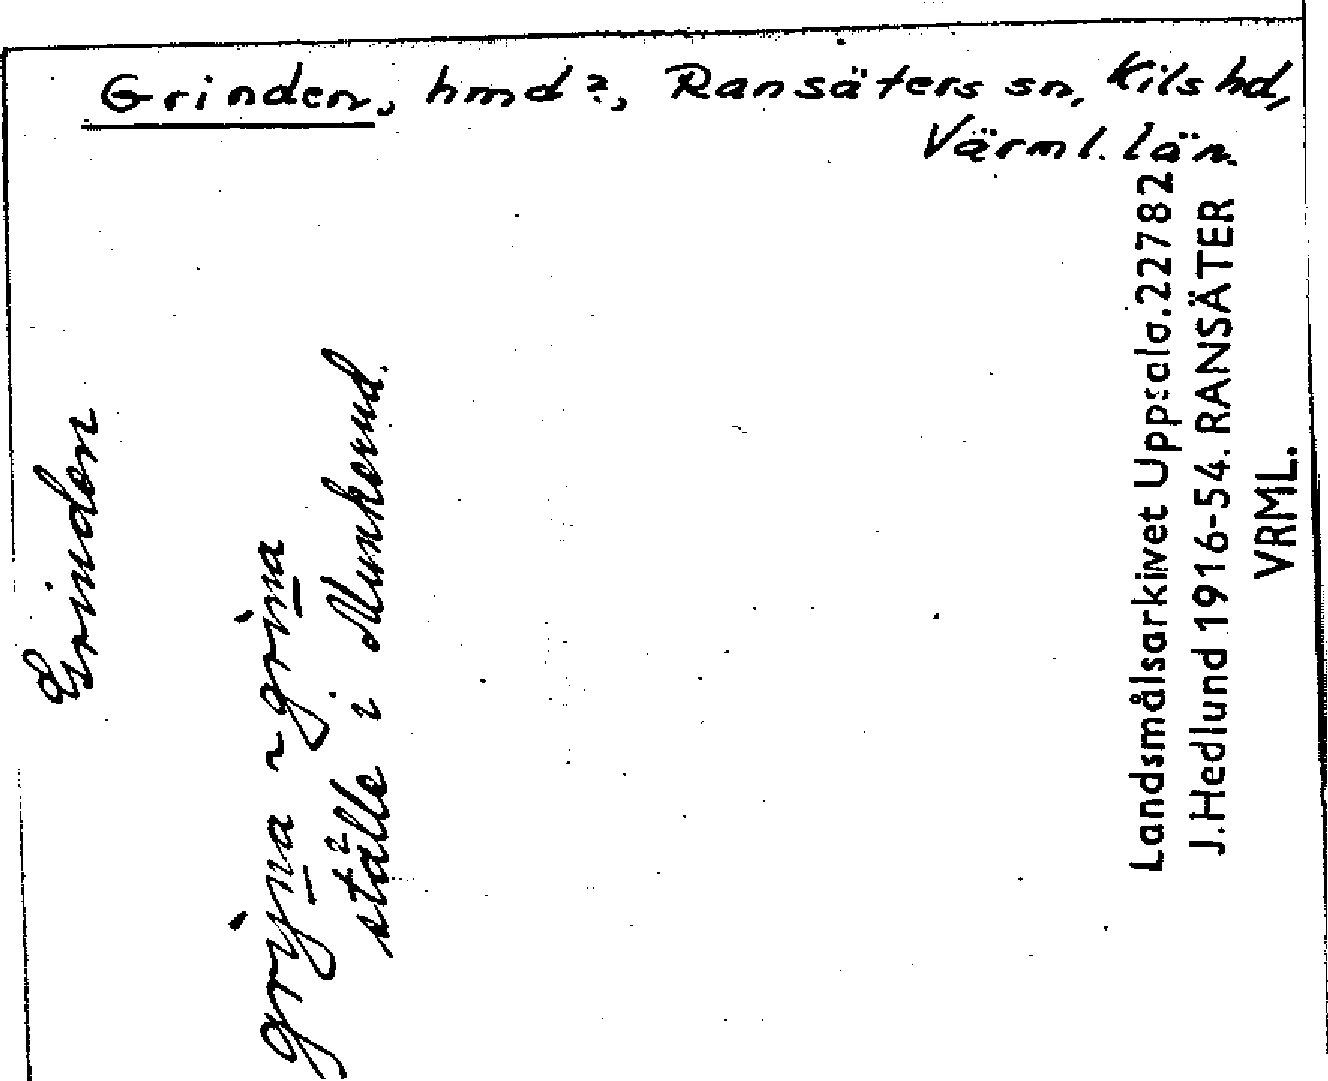 Grinden, hmd?, Ransäters sn, Kils hd,
Värml. län.
Grinden
grỳna ~ grı̀na
ställe i Munkerud.
Landsmålsarkivet Uppsala. 22782
J. Hedlund 1916-54. RANSÄTER
VRML.